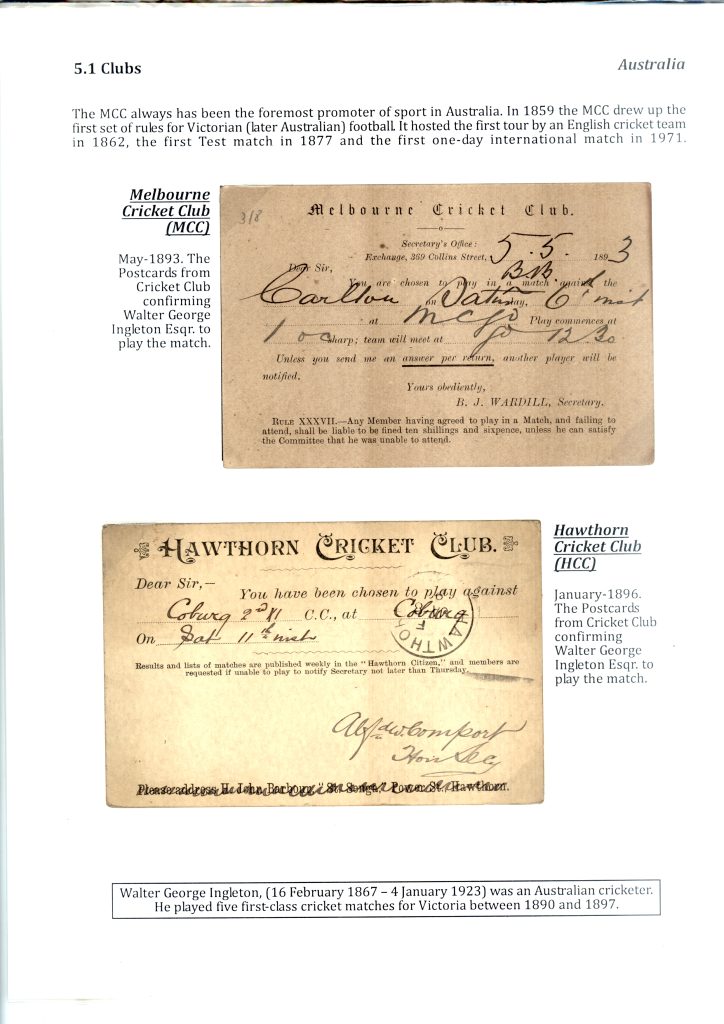 5.1 Clubs
Australia
The MCC always has been the foremost promoter of sport in Australia. In 1859 the MCC drew up the
first set of rules for Victorian (later Australian) football. It hosted the first tour by an English cricket team
in 1862, the first Test match in 1877 and the first one-day international match in 1971.
Melbourne
Cricket Club
(MCC)
May-1893. The
Postcards from
Cricket Club
confirming
Walter George
Ingleton Esqr. to
play the match.
3/8
Melbourne Cricket Club.
Secretary's Office:
Exchange, 369 Collins Street, 5.5. 1893
Dear Sir,
You are chosen to play in a match against the
Carlton on Saturday, 6th inst
at MCG Play commences at
1 oc sharp; team will meet at 12 30
Unless you send me an answer per return, another player will be
notified.
Yours obediently,
B. J. WARDILL, Secretary.
RULE XXXVII.—Any Member having agreed to play in a Match, and failing to
attend, shall be liable to be fined ten shillings and sixpence, unless he can satisfy
the Committee that he was unable to attend.
HAWTHORN CRICKET CLUB.
Dear Sir,—
You have been chosen to play against
Coburg 2nd XI C.C., at Coburg
On Sat 11th inst
HAWTHOR
Results and lists of matches are published weekly in the "Hawthorn Citizen," and members are
requested if unable to play to notify Secretary not later than Thursday.
Alfd W. Comport
Hon Sec
Please address H. John Barbour, "St. , Power St., Hawthorn.
Hawthorn
Cricket Club
(HCC)
January-1896.
The Postcards
from Cricket Club
confirming
Walter George
Ingleton Esqr. to
play the match.
Walter George Ingleton, (16 February 1867 – 4 January 1923) was an Australian cricketer.
He played five first-class cricket matches for Victoria between 1890 and 1897.